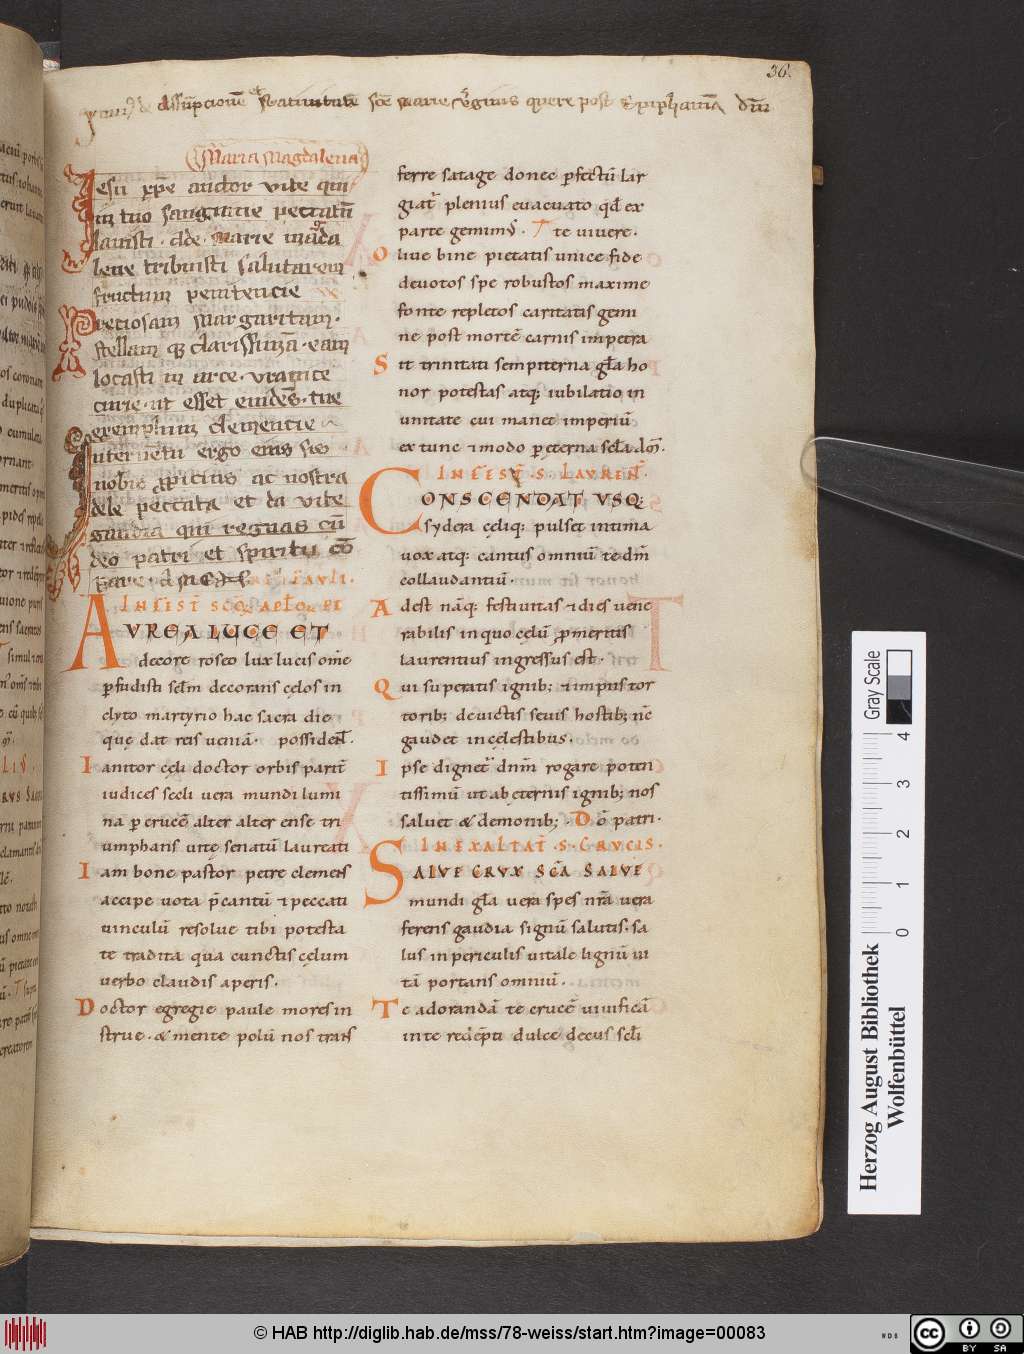 36.
ymnꝰ de Assūpcione et Natiuitate Scē Marie v̓ginis quere post Epiphaniā dm̄
Maria Magdalena
Iesu xp̄e auctor vite qui
in tuo sanguine peccatū
lauisti. Qde. Marie mag̓da
lene tribuisti salutarem
fructum penitencie
Preciosam margaritam.
stellam q; clarissimā. eam
locasti in arce. vranice
curie. ut esset euidēs. tue
exemplum clemencie
Interuētu ergo eius sis
nobis ꝓpicius ac nostra
dele peccata et da vite
gaudia qui regnas cū
deo patri et spiritu cō
pare. AMEN
PAVLI.
IN FEST̄ SCO̧ꝝ APL̄Oꝝ PE
AVREA LUCE ET
decore roseo lux lucis om̄e
ꝑfudisti sclm̄ decorans cęlos in
clyto martyrio hac sacra die
que dat reis ueniā. possidetˉ.
Ianitor cęli doctor orbis paritˉ
iudices secli uera mundi lumi
na per crucē alter alter ense tri
umphans vitę senatū laureati
Iam bone pastor petre clemens
accipe uota p̄cantū ⁊ peccati
uinculū resolue tibi potesta
te tradita qua cunctis cęlum
uerbo claudis aperis.
Doctor egregie paule mores in
strue. & mente polū nos trans
ferre satage donec ꝑfectū lar
giatˉ plenius euacuato qd̄ ex
parte gerimusˉ. T te uiuere.
Oliue bine pietatis unice fide
deuotos spe robustos maxime
fonte repletos caritatis gemi
ne post mortē carnis impetra
Sit trinitati sempiterna gl̄a ho
nor potestas atq; iubilatio in
unitate cui manet imperiū
ex tunc ⁊ modo ꝑ eterna scl̄a. dōs.
IN FEST̄. S. LAVRENTˉ.
CONSCENDAT VSQ;
sydera cęliq; pulset intima
uox atq; cantus omniū te dm̄
collaudantiū.
Adest nāq; festiuitas ⁊ dies uene
rabilis in quo cęlū ꝓmeritis
laurentius ingressus est.
Qui superatis ignib; ⁊ impiis tor
torib; deuictis seuis hostib; nc̄
gaudet in cęlestibus.
Ipse dignetˉ dnm̄ rogare poten
tissimū ut ab ęternis ignib; nos
saluet & demonib;. Dō patri.
IN EXALTATˉ. S. CRVCIS.
SALVE CRVX SCĀ SALVE
mundi gl̄a uera spes nr̄a uera
ferens gaudia signū salutis. sa
lus in periculis uitale lignū ui
tā portans omniū.
Te adorandā te crucē uiuificā
in te redēpti dulce decus scl̄i
Gray Scale
0 1 2 3 4
Herzog August Bibliothek
Wolfenbüttel
© HAB http://diglib.hab.de/mss/78-weiss/start.htm?image=00083
cc BY SA